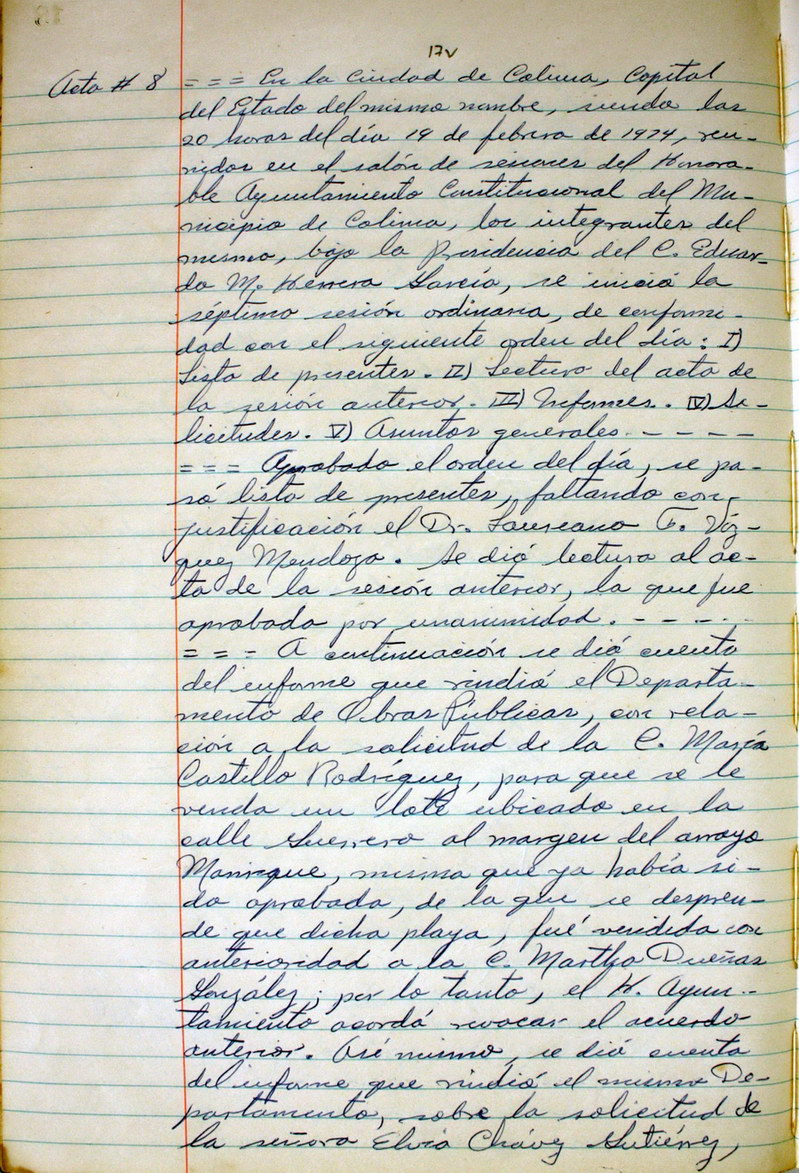 17v
Acta # 8 = = = En la Ciudad de Colima, Capital
del Estado del mismo nombre, siendo las
20 horas del día 19 de febrero de 1974, reu-
nidos en el salón de sesiones del Honora-
ble Ayuntamiento Constitucional del Mu-
nicipio de Colima, los integrantes del
mismo, bajo la Presidencia del C. Eduar-
do M. Herrera García, se inició la
séptima sesión ordinaria, de conformi-
dad con el siguiente orden del día: I)
Lista de presentes. II) Lectura del acta de
la sesión anterior. III) Informes. IV) So-
licitudes. V) Asuntos generales. - - - -
= = = Aprobado el orden del día, se pa-
só lista de presentes, faltando con
justificación el Dr. Laureano G. Váz-
quez Mendoza. Se dió lectura al ac-
ta de la sesión anterior, la que fue
aprobada por unanimidad. - - - - -
= = = A continuación se dió cuenta
del informe que rindió el Departa-
mento de Obras Públicas, con rela-
ción a la solicitud de la C. María
Castillo Rodríguez, para que se le
venda un lote ubicado en la
calle Guerrero al margen del arroyo
Manrique, misma que ya había si-
do aprobada, de la que se despren-
de que dicha playa, fué vendida con
anterioridad a la C. Martha Dueñas
González; por lo tanto, el H. Ayun-
tamiento acordó revocar el acuerdo
anterior. Así mismo, se dió cuenta
del informe que rindió el mismo De-
partamento, sobre la solicitud de
la señora Elvia Chávez Gutiérrez,